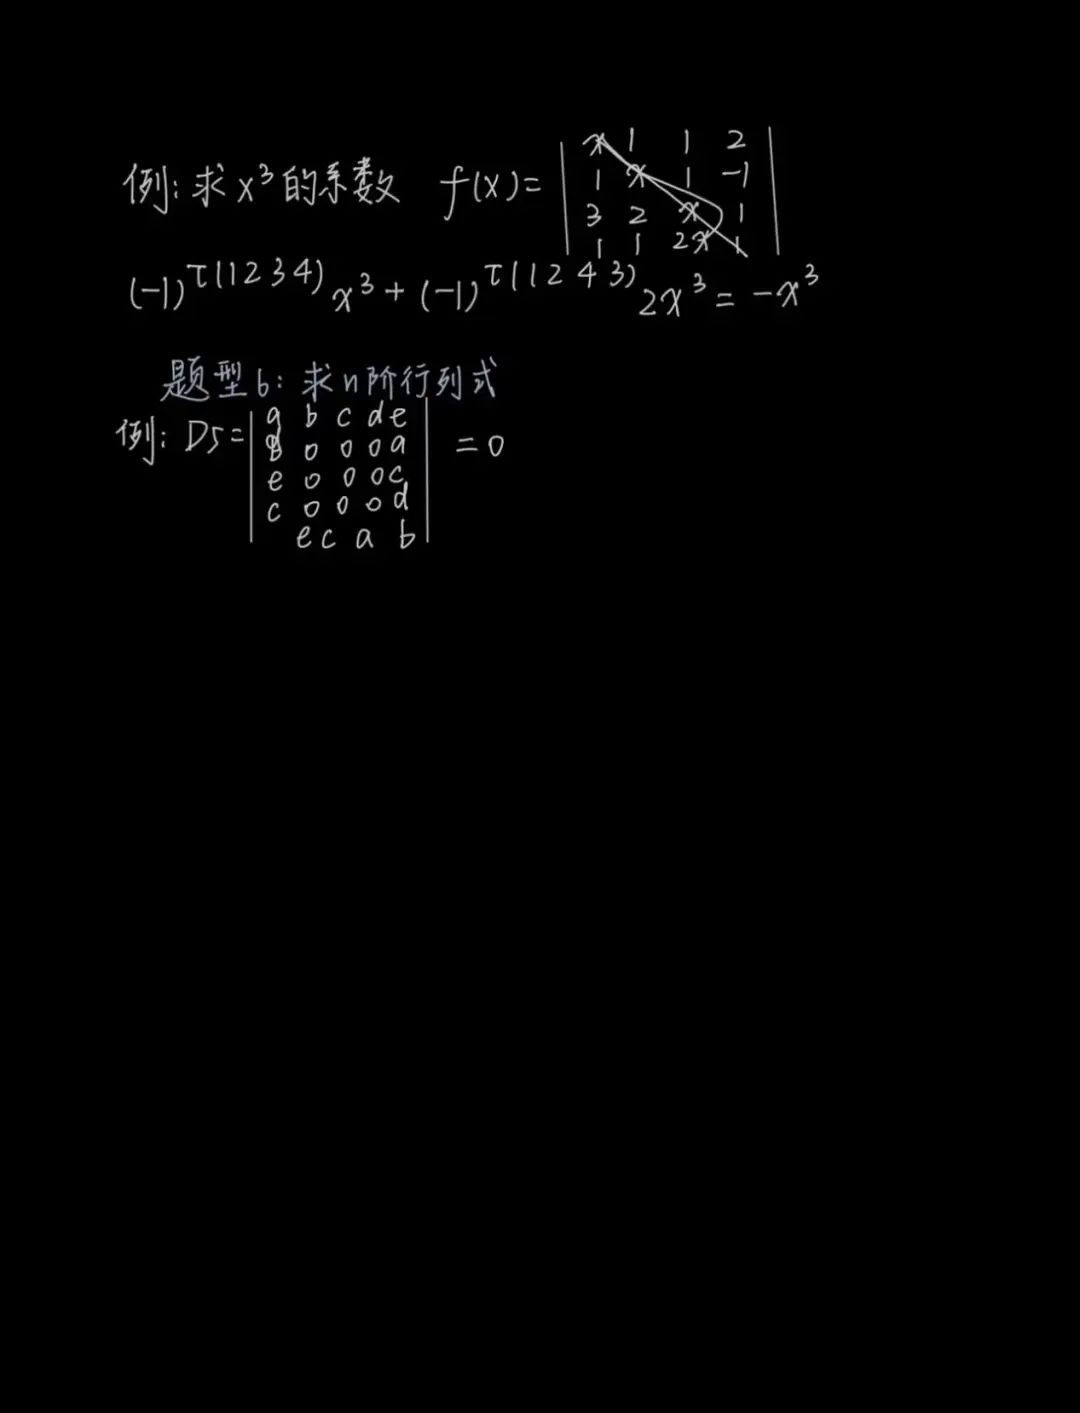 例: 求 x³ 的系数 f(x) = | x 1 1 2 |
| 1 x 1 -1 |
| 3 2 x 1 |
| 1 1 2x 1 |
(-1)^τ(1234) x³ + (-1)^τ(1243) 2x³ = -x³
题型6: 求n阶行列式
例: D5 = | a b c d e | = 0
0 0 0 a
e 0 0 0 c
c 0 0 0 d
e c a b |